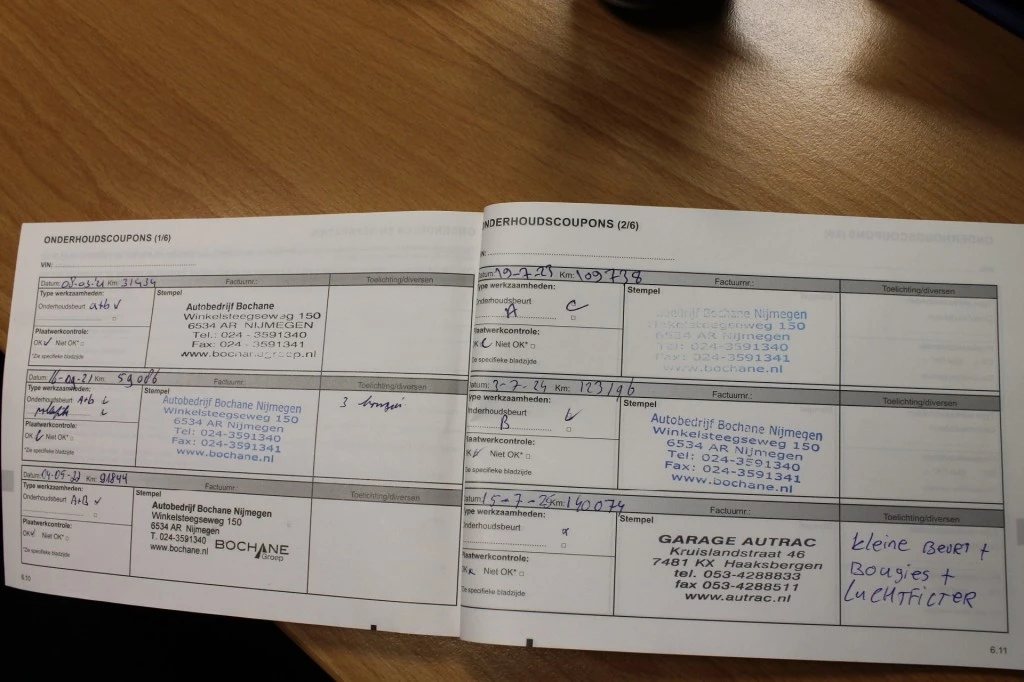 ONDERHOUDSCOUPONS (1/6)
VIN:
Datum: 08-03-21 Km: 31434 Factuurnr.: Toelichting/diversen
Type werkzaamheden: Stempel
Onderhoudsbeurt a+b
Plaatwerkcontrole:
OK Niet OK*
*Zie specifieke bladzijde
Autobedrijf Bochane
Winkelsteegseweg 150
6534 AR NIJMEGEN
Tel.: 024 - 3591340
Fax: 024 - 3591341
www.bochanegroep.nl
Datum: 16-09-21 Km: 59086 Factuurnr.: Toelichting/diversen
Type werkzaamheden: Stempel
Onderhoudsbeurt A+b
Plaatwerkcontrole:
OK Niet OK*
*Zie specifieke bladzijde
Autobedrijf Bochane Nijmegen
Winkelsteegseweg 150
6534 AR NIJMEGEN
Tel: 024-3591340
Fax: 024-3591341
www.bochane.nl
3
Datum: 04-05-22 Km: 91844 Factuurnr.: Toelichting/diversen
Type werkzaamheden: Stempel
Onderhoudsbeurt A+B
Plaatwerkcontrole:
OK Niet OK*
*Zie specifieke bladzijde
Autobedrijf Bochane Nijmegen
Winkelsteegseweg 150
6534 AR Nijmegen
T. 024-3591340
www.bochane.nl
BOCHANE
Groep
6.10
ONDERHOUDSCOUPONS (2/6)
Datum: 19-7-23 Km: 109738 Factuurnr.: Toelichting/diversen
Type werkzaamheden: Stempel
Onderhoudsbeurt
A
Plaatwerkcontrole:
OK Niet OK*
Zie specifieke bladzijde
Autobedrijf Bochane Nijmegen
Winkelsteegseweg 150
6534 AR NIJMEGEN
Tel: 024-3591340
Fax: 024-3591341
www.bochane.nl
Datum: 2-7-24 Km: 123196 Factuurnr.: Toelichting/diversen
Type werkzaamheden: Stempel
Onderhoudsbeurt
B
Plaatwerkcontrole:
OK Niet OK*
Zie specifieke bladzijde
Autobedrijf Bochane Nijmegen
Winkelsteegseweg 150
6534 AR NIJMEGEN
Tel: 024-3591340
Fax: 024-3591341
www.bochane.nl
Datum: 15-7-25 Km: 140074 Factuurnr.: Toelichting/diversen
Type werkzaamheden: Stempel
Onderhoudsbeurt
Plaatwerkcontrole:
OK Niet OK*
Zie specifieke bladzijde
GARAGE AUTRAC
Kruislandstraat 46
7481 KX Haaksbergen
tel. 053-4288833
fax 053-4288511
www.autrac.nl
kleine BEURT +
BOUgies +
LUCHTFILTER
6.11